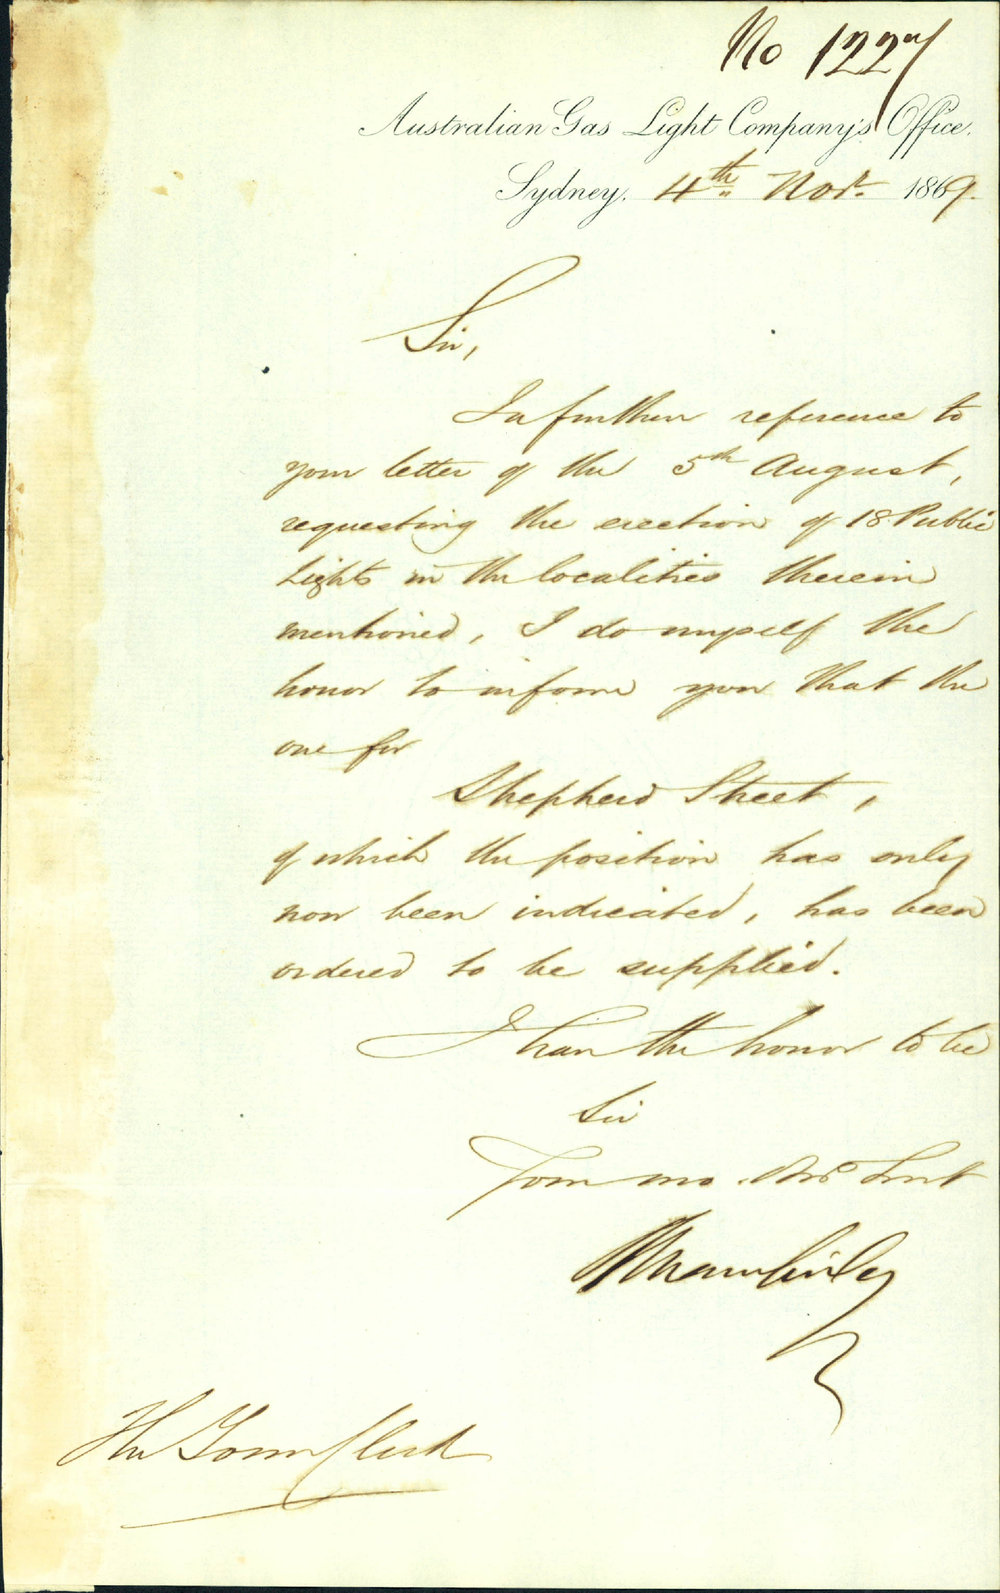 No 1227
Australian Gas Light Company's Office.
Sydney. 4th Novr. 1869.
Sir,
In further reference to
your letter of the 5th August,
requesting the erection of 18 Public
Lights in the localities therein
mentioned, I do myself the
honor to inform you that the
one for
Shepherd Street,
of which the position has only
now been indicated, has been
ordered to be supplied.
I have the honor to be
Sir
Your mo. Obt. Servt
The Town Clerk